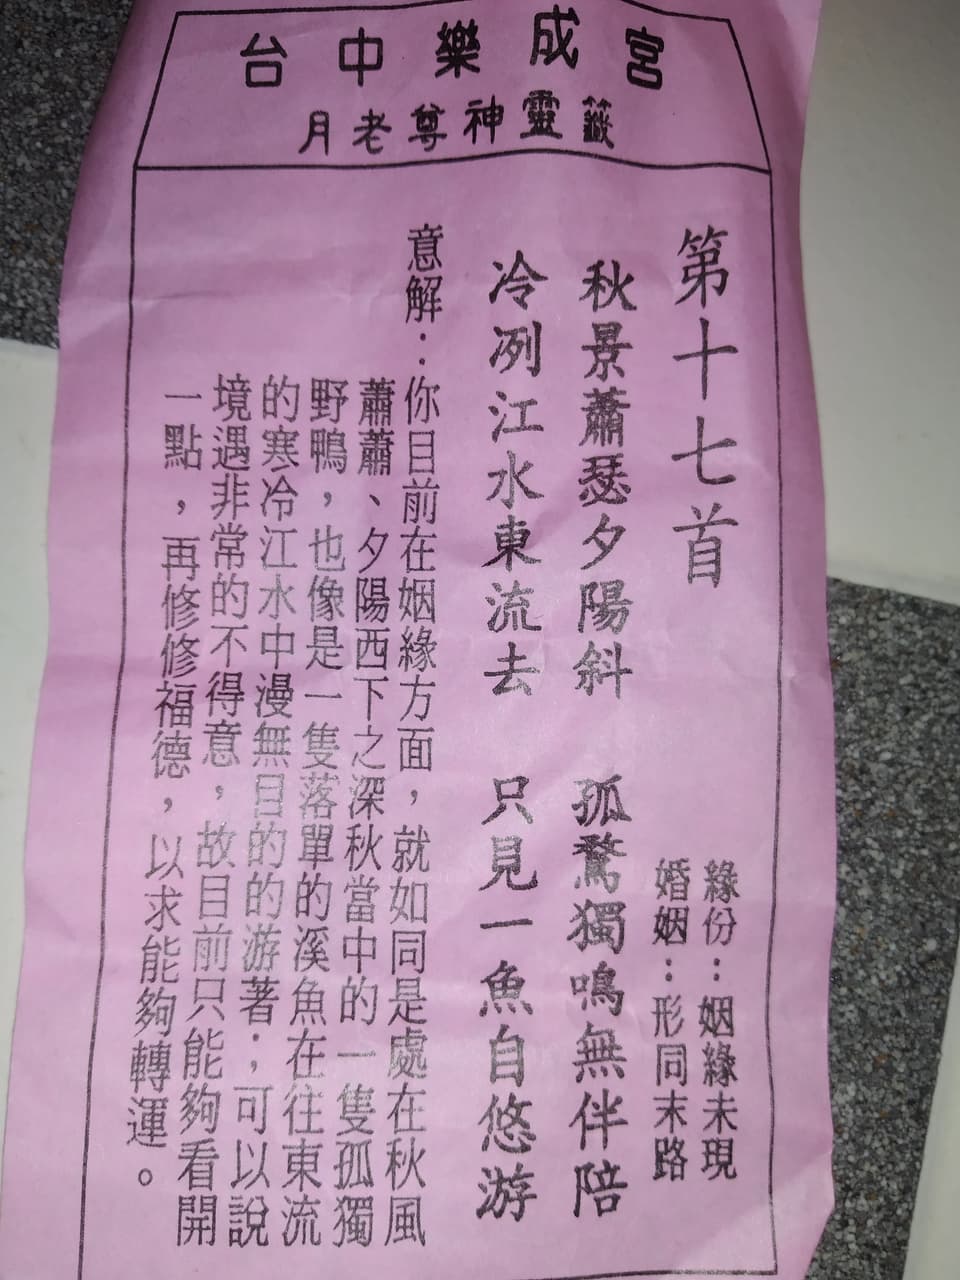 台中樂成宮
月老尊神靈籤
第十七首
緣份：姻緣未現
婚姻：形同末路
秋景蕭瑟夕陽斜　孤鶩獨鳴無伴陪
冷冽江水東流去　只見一魚自悠游
意解：你目前在姻緣方面，就如同是處在秋風
蕭蕭、夕陽西下之深秋當中的一隻孤獨
野鴨，也像是一隻落單的溪魚在往東流
的寒冷江水中漫無目的的游著；可以說
境遇非常的不得意，故目前只能夠看開
一點，再修修福德，以求能夠轉運。